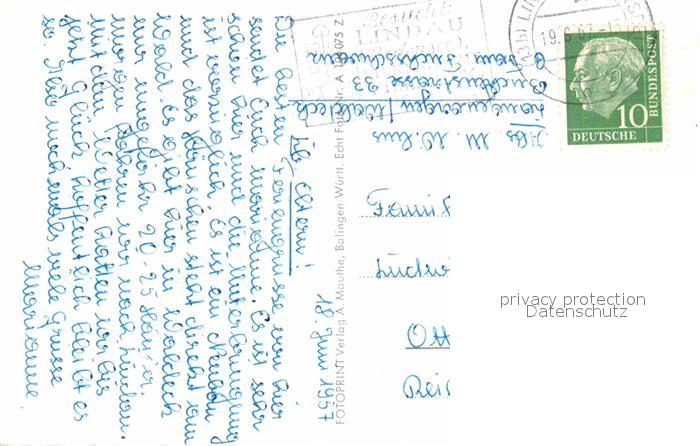 18. Juni 1957
Lb. Eltern!
Die besten Feriengrüsse von hier
sendet Euch Marianne. Es ist sehr
schön hier und die Unterbringung
ist vorzüglich. Es ist ein Neubau
und das Häuschen steht direkt am
Wald. Es gibt hier in Waldeck
nur ungefähr 20-25 Häuser.
Morgen fahren wir nach Lindau.
Mit dem Wetter hatten wir bis
jetzt Glück hoffentlich bleibt es
so. Also nochmals viele Grüsse
Marianne
FOTOPRINT Verlag A. Mauthe, Balingen/Württ. Echt Foto Nr. A 1075 Z
Abs. M.
Buchenstrasse 33
Besucht
LINDAU
(13b) LIN
19.6.57
DEUTSCHE
BUNDESPOST
10
Famil
Ludw
Ott
Reis
privacy protection
Datenschutz